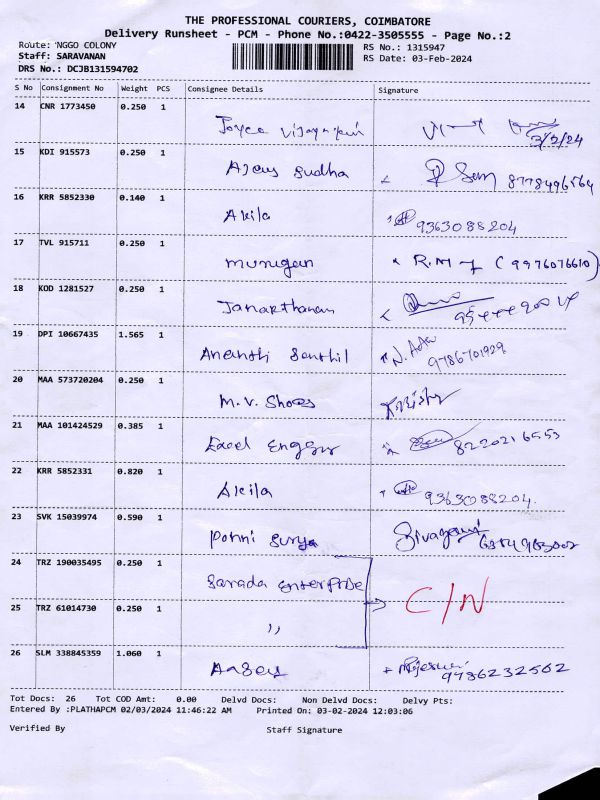 THE PROFESSIONAL COURIERS, COIMBATORE
Delivery Runsheet - PCM - Phone No.:0422-3505555 - Page No.:2
Route: NGGO COLONY
RS No.: 1315947
Staff: SARAVANAN
RS Date: 03-Feb-2024
DRS No.: DCJB131594702
S No Consignment No Weight PCS Consignee Details Signature
14 CNR 1773450 0.250 1 Joyce
3/2/24
15 KDI 915573 0.250 1 Sudha
8778496564
16 KRR 5852330 0.140 1 Akila
9363088204
17 TVL 915711 0.250 1 Murugan R.M (9976076610)
18 KOD 1281527 0.250 1 Janarthanan
19 DPI 10667435 1.565 1 Ananthi Senthil
9786701929
20 MAA 573720204 0.250 1 M.V. Shoes
21 MAA 101424529 0.385 1 Excel
8220216553
22 KRR 5852331 0.820 1 Akila 9363088204.
23 SVK 15039974 0.590 1 Surya Sivagami
24 TRZ 190035495 0.250 1 Sarada Enterprise
C/N
25 TRZ 61014730 0.250 1 ,,
26 SLM 338845359 1.060 1
9786232502
Tot Docs: 26 Tot COD Amt: 0.00 Delvd Docs: Non Delvd Docs: Delvy Pts:
Entered By :PLATHAPCM 02/03/2024 11:46:22 AM Printed On: 03-02-2024 12:03:06
Verified By Staff Signature